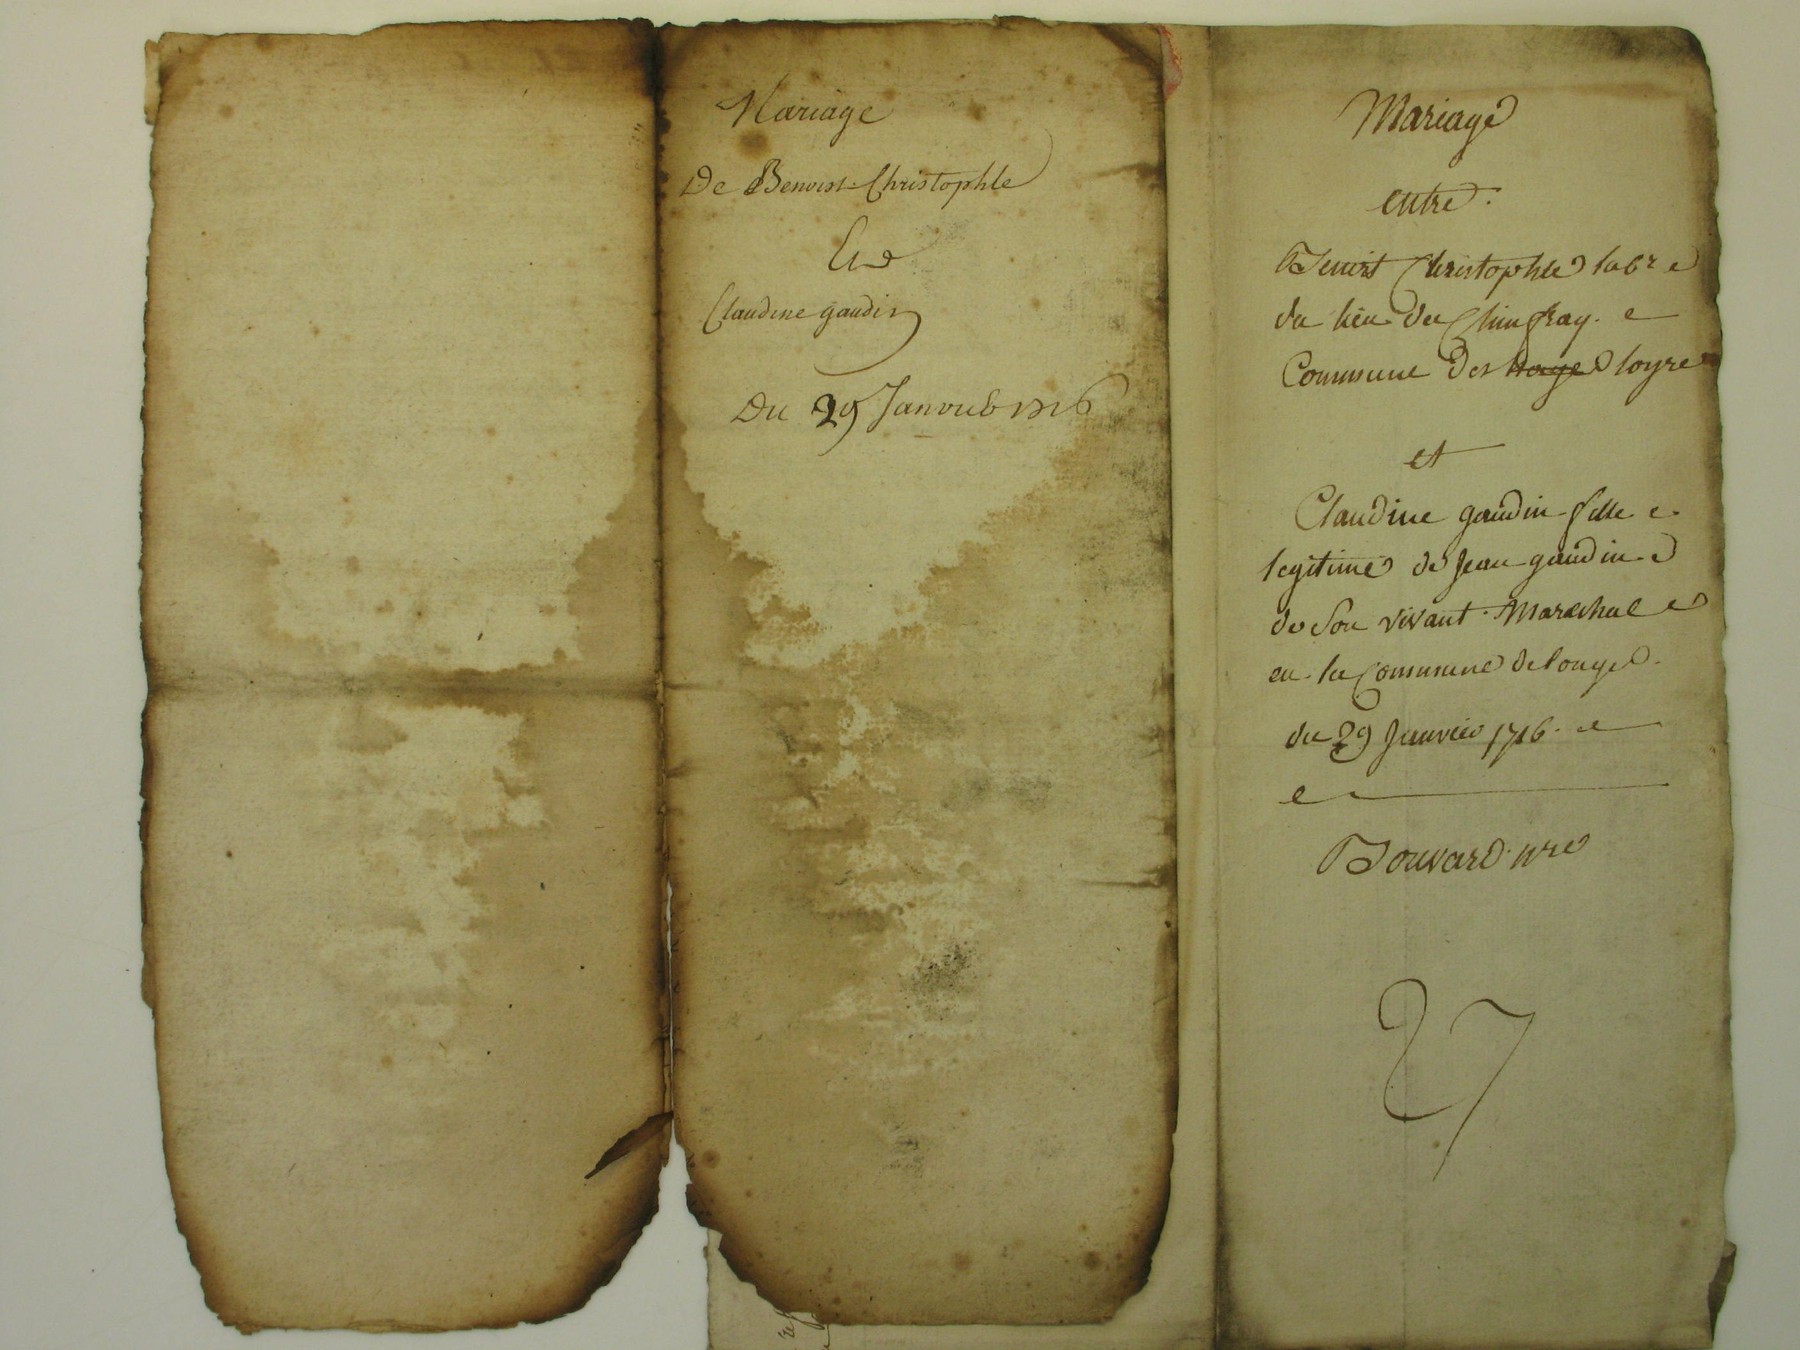 Mariage
De Benoist Christophle
Et
Claudine gaudin
Du 29 Janvié 1716
Mariage
entre
Benoist Christophle labr
du lieu du
Commune des loyre
et
Claudine gaudin fille
legitime de Jean gaudin
de son vivant Marechal
en la Commune de
du 29 Janvier 1716.
Bouvard nre
27